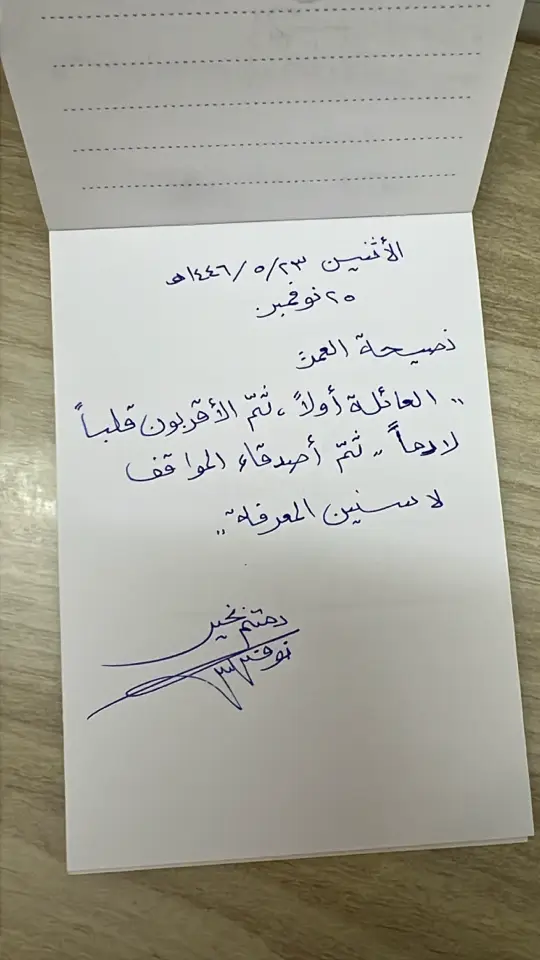 الأثنين ٢٣/ ٥/ ١٤٤٦هـ
٢٥ نوفمبر
نصيحة العمر
,, العائلة أولاً، ثمّ الأقربون قلباً
لا دماً ,, ثمّ أصدقاء المواقف
لا سنين المعرفة ,,
دمتم بخير